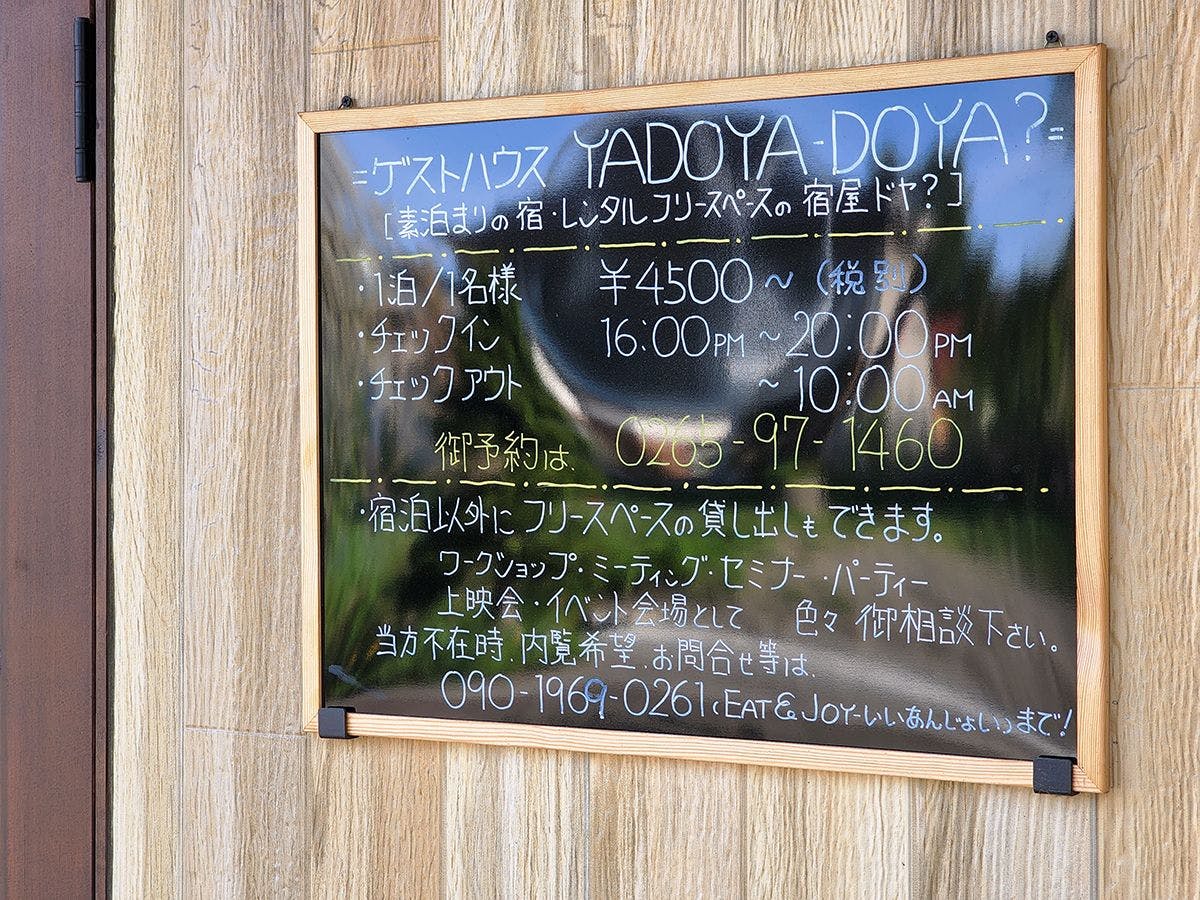 =ゲストハウス YADOYA-DOYA?=
[素泊まりの宿・レンタルフリースペースの宿屋ドヤ?]
・1泊/1名様 ¥4500~(税別)
・チェックイン 16:00PM~20:00PM
・チェックアウト ~10:00AM
御予約は、0265-97-1460
・宿泊以外にフリースペースの貸し出しもできます。
ワークショップ・ミーティング・セミナー・パーティー
上映会・イベント会場として 色々御相談下さい。
当方不在時、内覧希望、お問合せ等は、
090-1969-0261(EAT&JOY-いいあんじょい)まで!